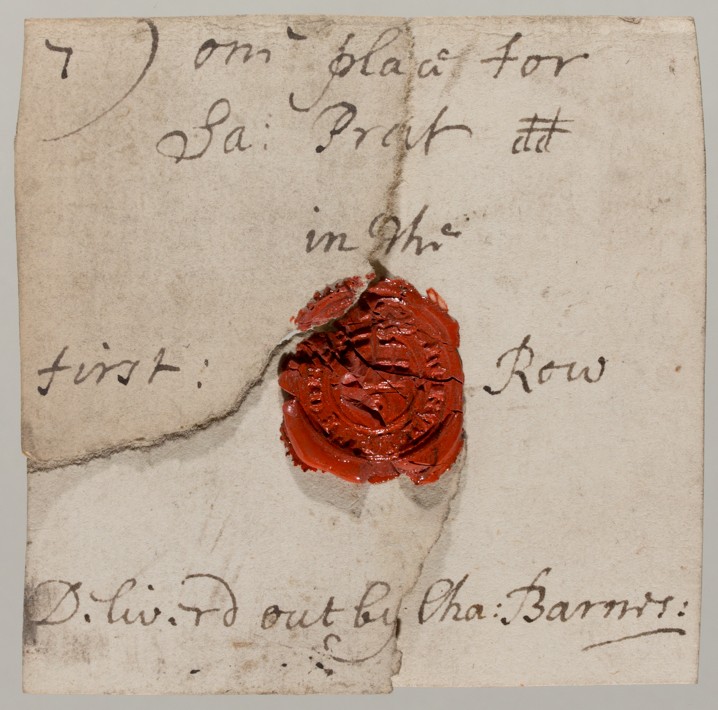 7) one place for
Sa: Prat dd
in the
first: Row
Deliverd out by Cha: Barnes: